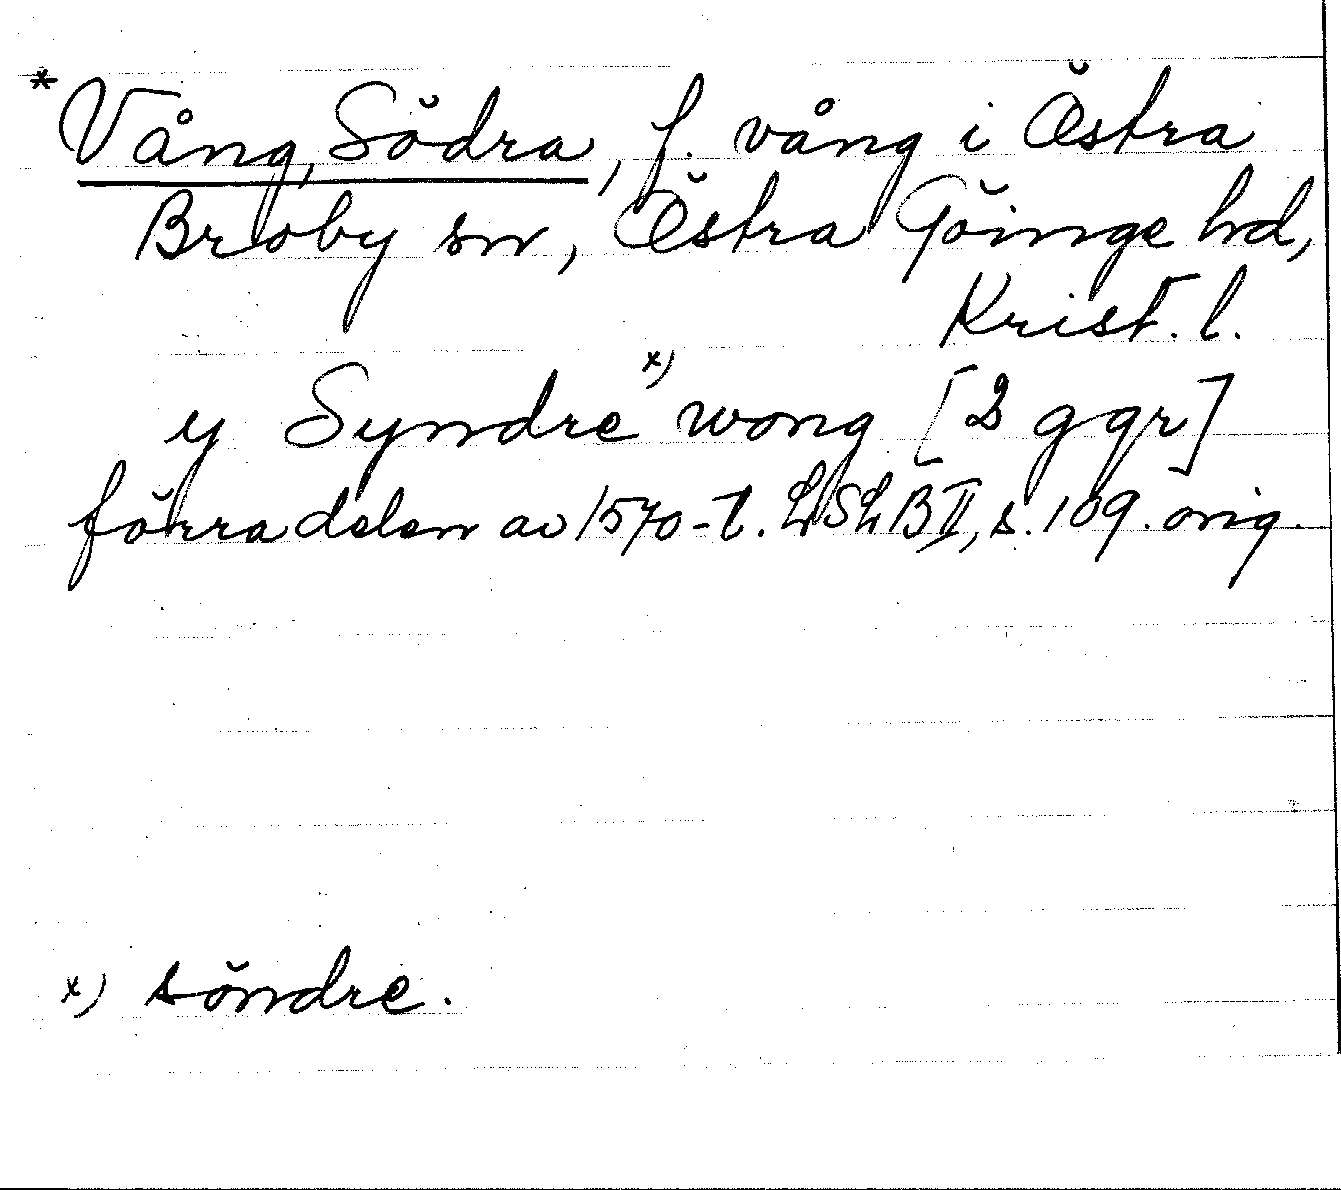 * Vång, Södra, f. vång i Östra
Broby sn, Östra Göinge hd,
Krist. l.
y Syndre x) wong [2 ggr]
förra delen av 1570-t. LSLB II, s. 109. orig.
x) söndre.